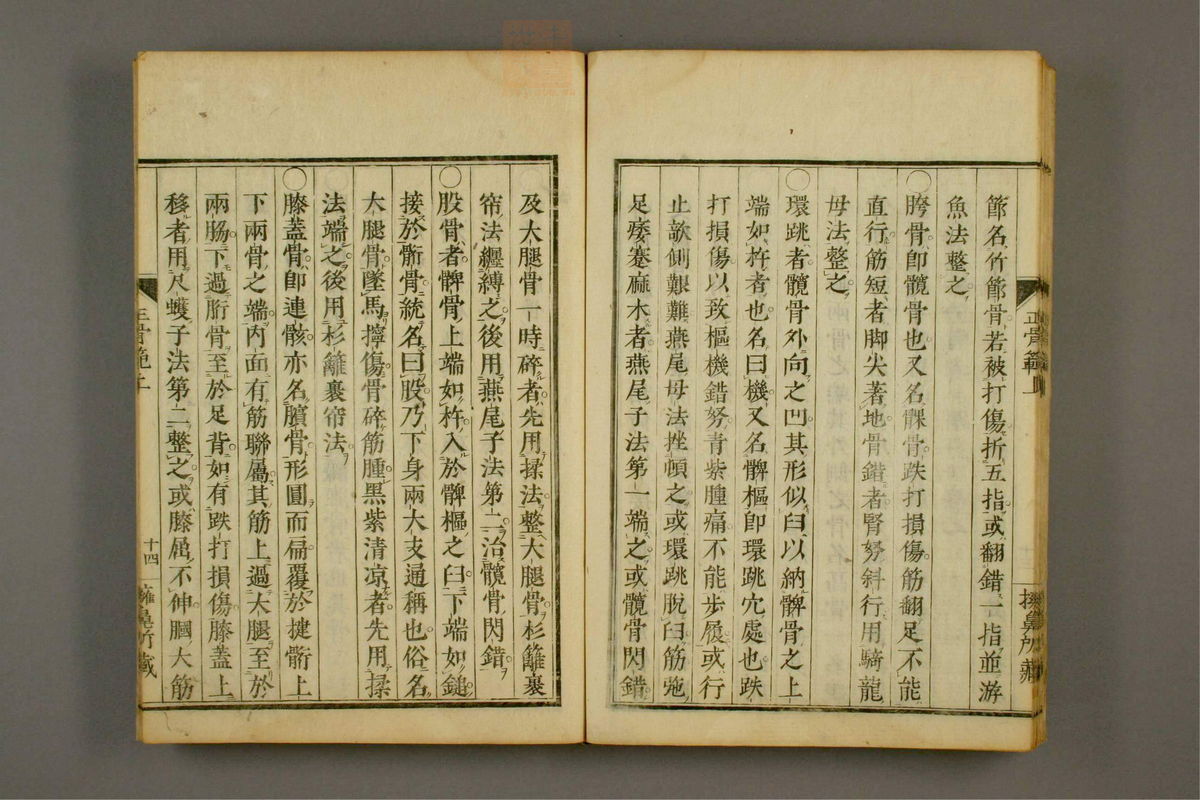 節名竹節骨若被打傷折五指或翻錯一指並游
魚法整之
○胯骨卽髖骨也又名髁骨跌打損傷筋翻足不能
直行筋短者脚尖著地骨錯者臀努斜行用騎龍
母法整之
○環跳者髖骨外向之凹其形似臼以納髀骨之上
端如杵者也名曰機又名髀樞卽環跳穴處也跌
打損傷以致樞機錯努青紫腫痛不能步履或行
止欹側艱難燕尾母法挫頓之或環跳脫臼筋弛
足痿蹇麻木者燕尾子法第一端之或髖骨閃錯
正骨範上
十四
及大腿骨一時碎者先用揉法整大腿骨杉籬裹
帘法纏縛之後用燕尾子法第二治髖骨閃錯
○股骨者髀骨上端如杵入於髀樞之臼下端如鎚
接於䯒骨統名曰股乃下身兩大支通稱也俗名
大腿骨墜馬擰傷骨碎筋腫黑紫清凉者先用揉
法端之後用杉籬裹帘法
○膝蓋骨卽連骸亦名臏骨形圓而扁覆於揵䯒上
下兩骨之端內面有筋聯屬其筋上過大腿至於
兩肋下過胻骨至於足背如有跌打損傷膝蓋上
移者用尺蠖子法第二整之或膝屈不伸膕大筋